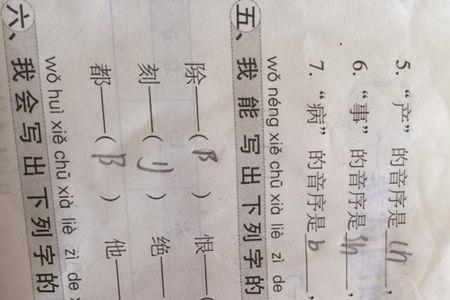 5. “产” 的音序是 Ch ,
6. “事” 的音序是 Sh ,
7. “病” 的音序是 b ,
wǒ néng xiě chū xià liè zì de
五、我能写出下列字的
除——( 阝 ) 恨——(
刻——( 刂 ) 绝——
都——( 阝 ) 他——
wǒ huì xiě chū xià liè zì de
六、我会写出下列字的